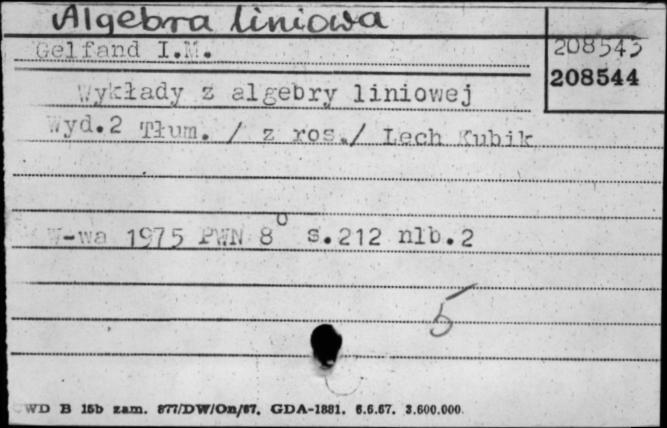 Algebra liniowa
Gelfand I.M.
208543
208544
Wykłady z algebry liniowej
Wyd.2 Tłum. / z ros./ Lech Kubik
W-wa 1975 PWN 8° s.212 nlb.2
5
CWD B 15b zam. 877/DW/On/67. GDA-1881. 6.6.67. 3.600.000.